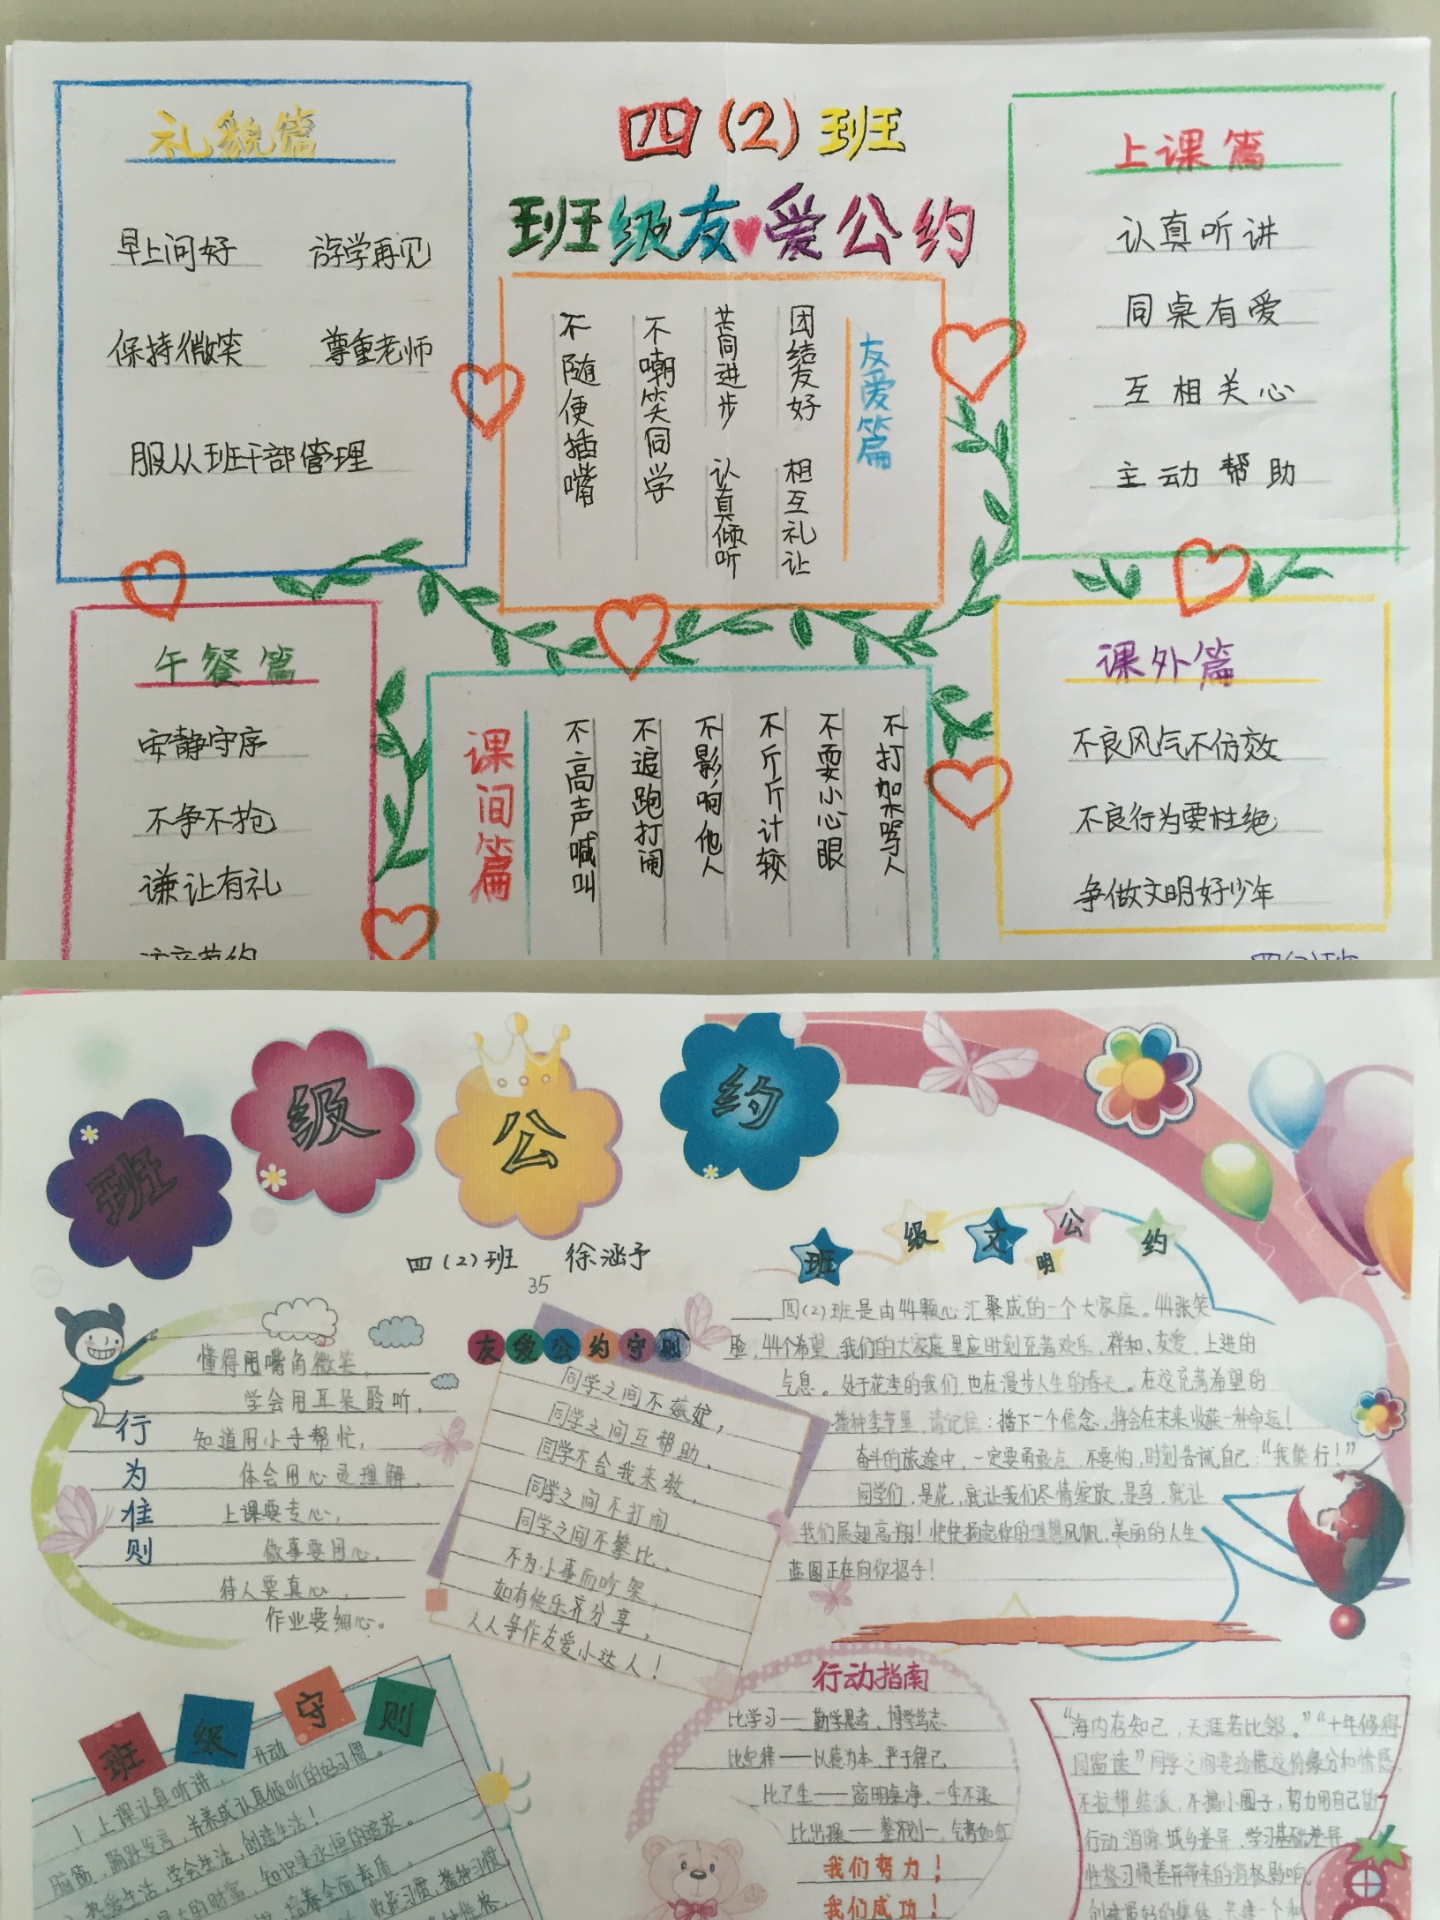 四(2)班
班级友爱公约
礼貌篇
早上问好 游学再见
保持微笑 尊重老师
服从班干部管理
友爱篇
团结友好 相互礼让
共同进步 认真倾听
不嘲笑同学
不随便插嘴
上课篇
认真听讲
同桌有爱
互相关心
主动帮助
午餐篇
安静守序
不争不抢
谦让有礼
课间篇
不打架骂人
不耍小心眼
不斤斤计较
不影响他人
不追跑打闹
不高声喊叫
课外篇
不良风气不仿效
不良行为要杜绝
争做文明好少年
班级公约
四(2)班 徐涵予
35
行为准则
懂得用嘴角微笑,
学会用耳朵聆听,
知道用小手帮忙,
体会用心灵理解,
上课要专心,
做事要用心,
待人要真心,
作业要细心。
友爱公约守则
同学之间不嫉妒,
同学之间互帮助,
同学不会我来教,
同学之间不打闹,
同学之间不攀比,
不为小事而吵架,
如有快乐齐分享,
人人争作友爱小达人!
班级文明公约
四(2)班是由44颗心汇聚成的一个大家庭。44张笑
脸,44个希望,我们的大家庭里应时刻充着欢乐、祥和、友爱、上进的
气息。处于花季的我们,也在漫步人生的春天。在这充满希望的
播种季节里,请记住:播下一个信念,将会在未来收获一种命运!
奋斗的旅途中,一定要勇敢点,不要怕,时刻告诉自己:“我能行!”
同学们,是花,就让我们尽情绽放,是鸟,就让
我们展翅高翔!快快扬起你的理想风帆,美丽的人生
蓝图正在向你招手!
班级守则
1、上课认真听讲,开动
脑筋,踊跃发言,养成认真倾听的好习惯。
热爱生活,学会生活,创造生活!
大的财富,知识是永恒的追求。
培养全面素质,
收获习惯,播种习惯
行动指南
比学习——勤学思考、博学笃志
比纪律——以德为本、严于律己
比卫生——窗明桌净、一尘不染
比出操——整齐划一、气势如虹
我们努力!
我们成功!
“海内存知己,天涯若比邻。”“十年修得
同窗读”同学之间要珍惜这份缘分和情感,
不拉帮结派,不搞小圈子,努力用自己的
行动消除城乡差异、学习基础差异、
性格习惯差异带来的消极影响,
创建最好的集体,共建一个和